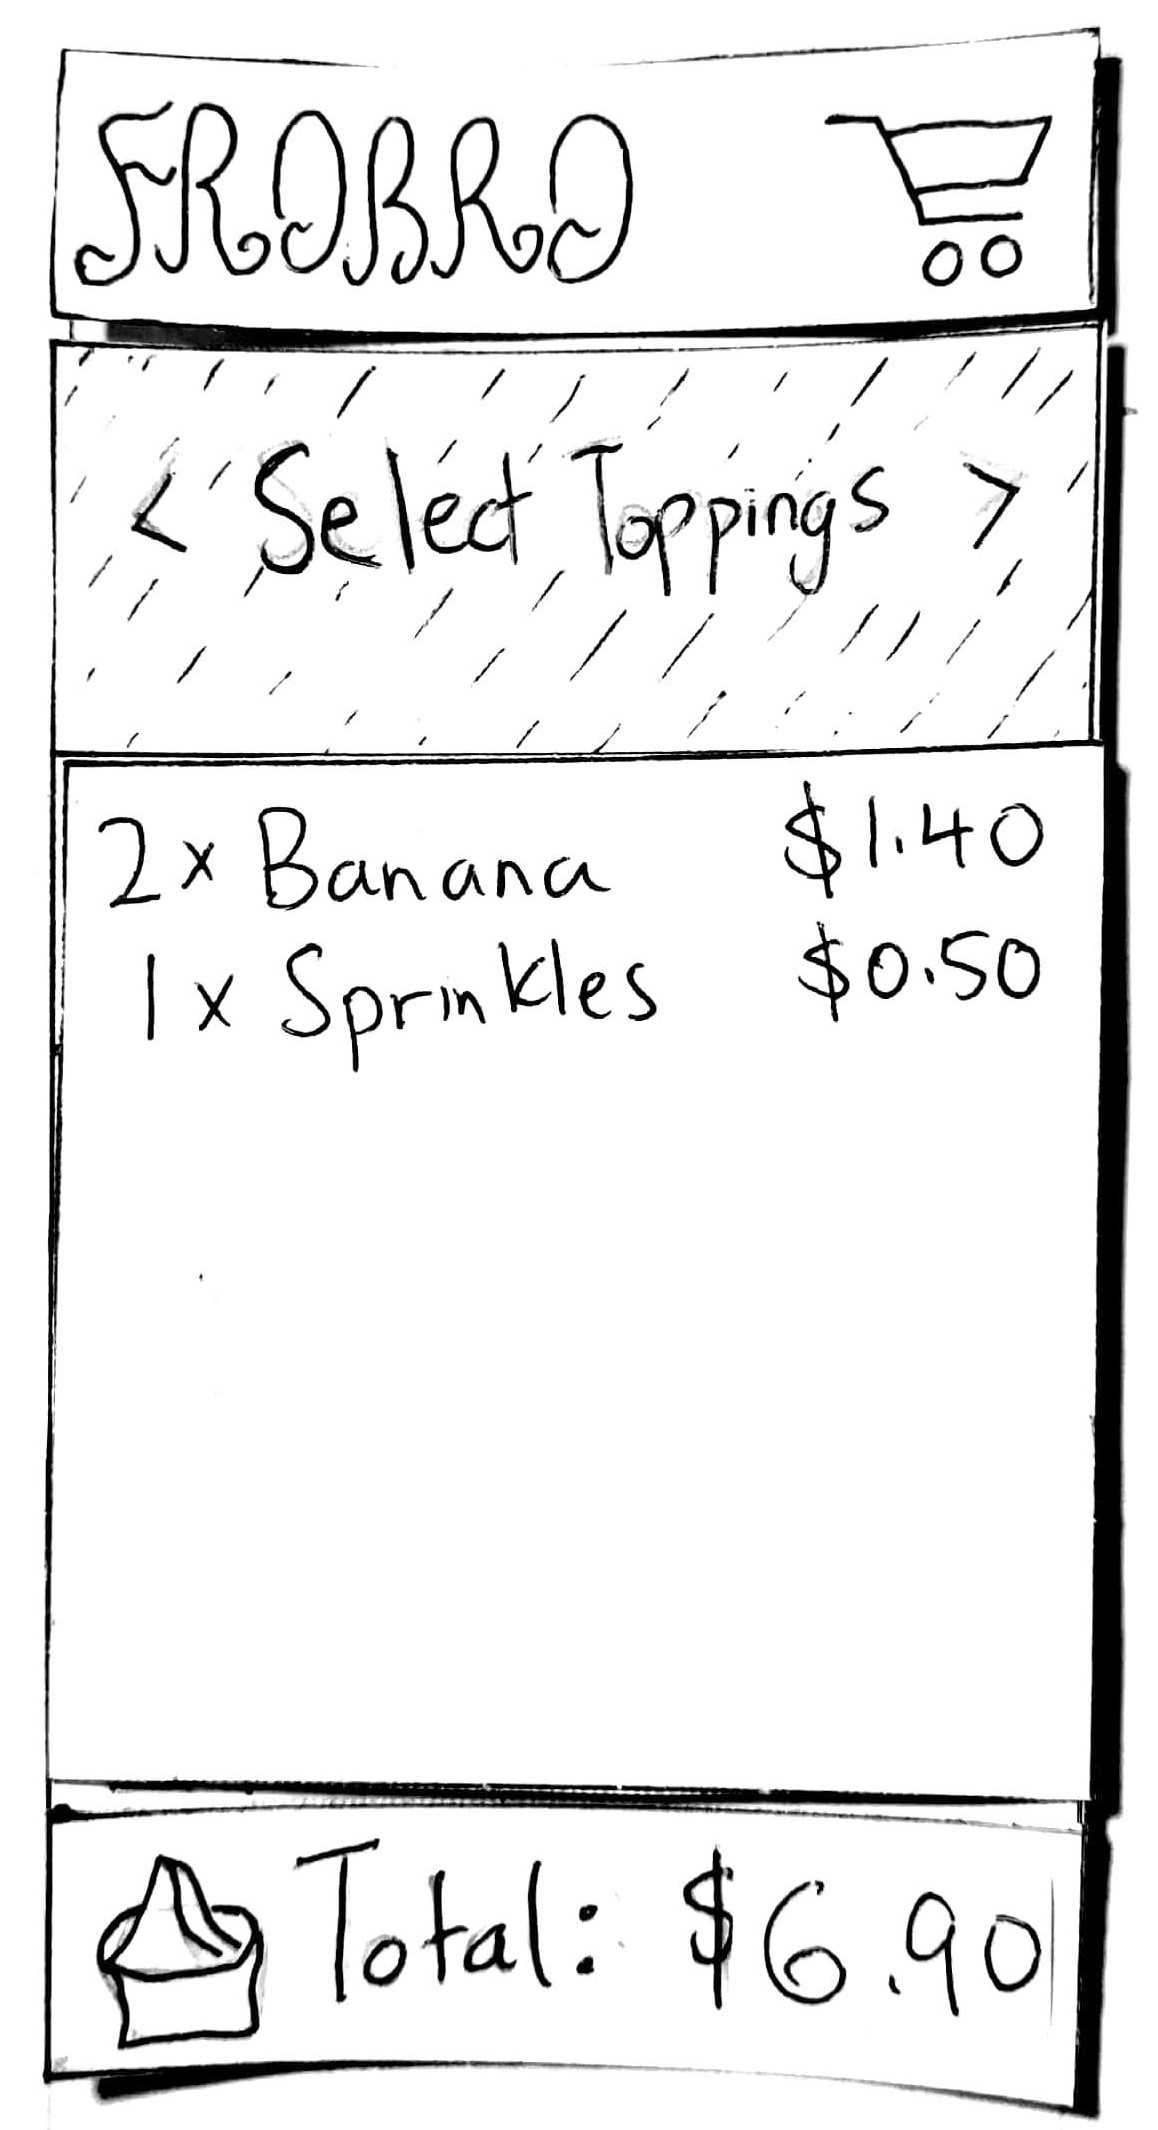 FROBRO
< Select Toppings >
2x Banana $1.40
1x Sprinkles $0.50
Total: $6.90